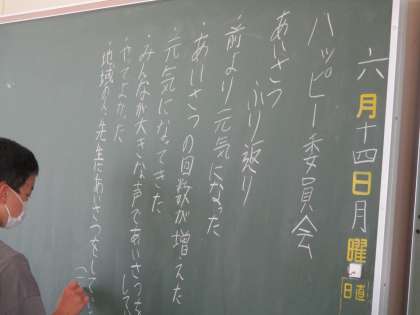 六月十四日月曜
日直
ハッピー委員会
あいさつ ふり返り
・前より元気になった
・あいさつの回数が増えた
・元気になってきた
・みんなが大きな声であいさつをして
・やってよかった
・地域の人、先生にあいさつをして